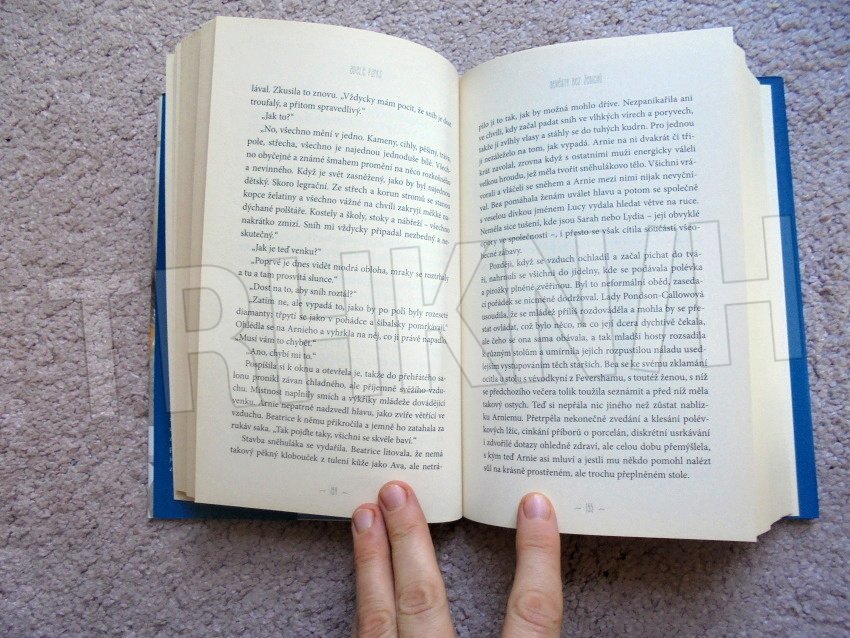 ADELE PARKS
lával. Zkusila to znovu. „Vždycky mám pocit, že sníh je dost
troufalý, a přitom spravedlivý.“
„Jak to?“
„No, všechno mění v jedno. Kameny, cihly, pěšiny, trávu,
pole, střecha, všechno je najednou jednoduše bílé. Všech-
no obyčejné a známé šmahem promění na něco rozkošného
a nevinného. Když je svět zasněžený, jako by byl najednou
dětský. Skoro legrační. Ze střech a korun stromů se stanou
kopce želatiny a všechno vážné na chvíli zakryjí měkké na-
dýchané polštáře. Kostely a školy, stoky a nábřeží – všechno
nakrátko zmizí. Sníh mi vždycky připadal nezbedný a ne-
skutečný.“
„Jak je teď venku?“
„Poprvé je dnes vidět modrá obloha, mraky se roztrhaly
a tu a tam prosvítá slunce.“
„Dost na to, aby sníh roztál?“
„Zatím ne, ale vypadá to, jako by po poli byly rozeseté
diamanty; třpytí se jako v pohádce a šibalsky pomrkávají.“
Ohlédla se na Arnieho a vyhrkla na něj, co jí právě napadlo.
„Musí vám to chybět.“
„Ano, chybí mi to.“
Pospíšila si k oknu a otevřela je, takže do přehřátého sa-
lonu pronikl závan chladného, ale příjemně svěžího vzdu-
chu. Místnost naplnily smích a výkřiky mládeže dovádějící
venku. Arnie nepatrně nadzvedl hlavu, jako zvíře větřící ve
vzduchu. Beatrice k němu přikročila a jemně ho zatahala za
rukáv saka. „Tak pojďte taky, všichni se skvěle baví.“
Stavba sněhuláka se vydařila. Beatrice litovala, že nemá
takový pěkný klobouček z tulení kůže jako Ava, ale netrá-
— 154 —
NEVĚSTY BEZ ŽENICHŮ
pilo ji to tak, jak by možná mohlo dříve. Nezpanikařila ani
ve chvíli, kdy začal padat sníh ve vlhkých vírech a poryvech,
takže jí zvlhly vlasy a stáhly se do tuhých kudrn. Pro jednou
jí nezáleželo na tom, jak vypadá. Arnie na ni dvakrát či tři-
krát zavolal, zrovna když s ostatními muži energicky váleli
velkou hroudu, jež měla tvořit sněhulákovo tělo. Všichni vrá-
vorali a vláčeli se sněhem a Arnie mezi nimi nijak nevyční-
val. Bea pomáhala ženám uválet hlavu a potom se společně
s veselou dívkou jménem Lucy vydala hledat větve na ruce.
Neměla sice tušení, kde jsou Sarah nebo Lydia – její obvyklé
opory ve společnosti –, i přesto se však cítila součástí všeo-
becné zábavy.
Později, když se vzduch ochladil a začal píchat do tvá-
ří, nahrnuli se všichni do jídelny, kde se podávala polévka
a pirožky plněné zvěřinou. Byl to neformální oběd, zaseda-
cí pořádek se nicméně dodržoval. Lady Pondson-Callowová
usoudila, že se mládež příliš rozdováděla a mohla by se pře-
stat ovládat, což bylo něco, na co její dcera dychtivě čekala,
ale čeho se ona sama obávala, a tak mladší hosty rozsadila
k různým stolům a umírnila jejich rozpustilou náladu used-
lejším vystupováním těch starších. Bea se ke svému zklamání
ocitla u stolu s vévodkyní z Fevershamu, s toutéž ženou, s níž
se předchozího večera tolik toužila seznámit a před níž měla
takový ostych. Teď si nepřála nic jiného než zůstat nablíz-
ku Arniemu. Přetrpěla nekonečné zvedání a klesání polév-
kových lžic, cinkání příborů o porcelán, diskrétní usrkávání
i zdvořilé dotazy ohledně zdraví, ale celou dobu přemýšlela,
s kým teď Arnie asi mluví a jestli mu někdo pomohl nalézt
sůl na krásně prostřeném, ale trochu přeplněném stole.
— 155 —